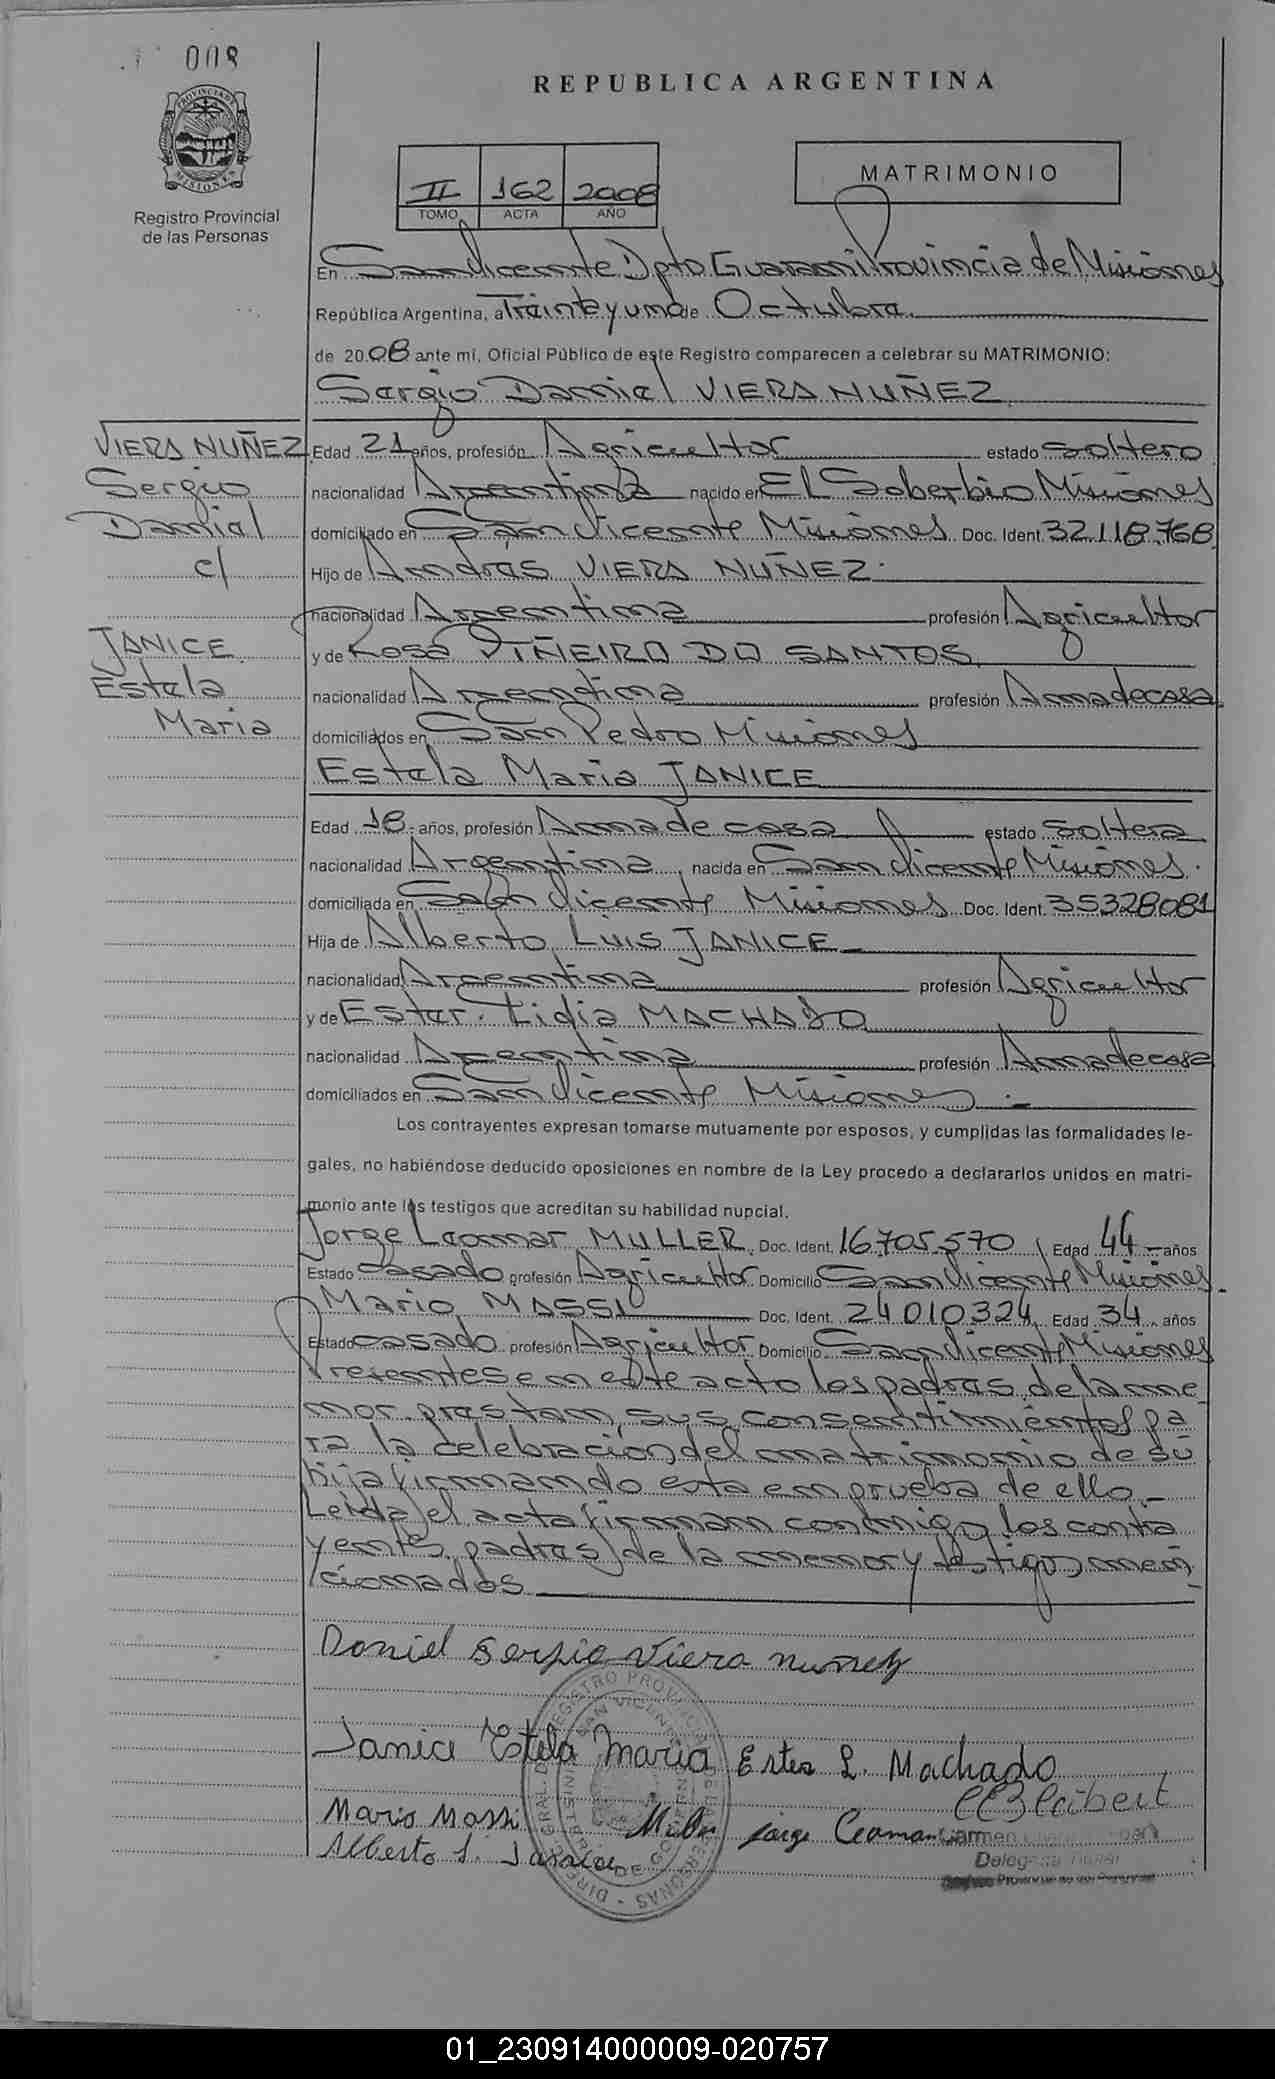 008
PROVINCIA DE
MISIONES
Registro Provincial
de las Personas
REPUBLICA ARGENTINA
II 162 2008
TOMO ACTA AÑO
MATRIMONIO
En San Vicente Dpto Guarani Provincia de Misiones
República Argentina, a Treinta y uno de Octubre.
de 2008 ante mí, Oficial Público de este Registro comparecen a celebrar su MATRIMONIO:
Sergio Daniel VIERA NUÑEZ
VIERA NUÑEZ
Sergio
Daniel
c/
JANICE
Estela
Maria
Edad 21 años, profesión Agricultor estado soltero
nacionalidad Argentina nacido en El Soberbio Misiones
domiciliado en San Vicente Misiones Doc. Ident. 32.118.768
Hijo de Andrés VIERA NUÑEZ.
nacionalidad Argentina profesión Agricultor
y de Rosa PIÑEIRO DO SANTOS
nacionalidad Argentina profesión Ama de casa
domiciliados en San Pedro Misiones
Estela Maria JANICE
Edad 18 años, profesión Ama de casa estado soltera
nacionalidad Argentina, nacida en San Vicente Misiones.
domiciliada en San Vicente Misiones Doc. Ident. 35328081
Hija de Alberto Luis JANICE
nacionalidad Argentina profesión Agricultor
y de Ester Lidia MACHADO
nacionalidad Argentina profesión Ama de casa
domiciliados en San Vicente Misiones.-
Los contrayentes expresan tomarse mutuamente por esposos, y cumplidas las formalidades le-
gales, no habiéndose deducido oposiciones en nombre de la Ley procedo a declararlos unidos en matri-
monio ante los testigos que acreditan su habilidad nupcial.
Jorge Leomar MULLER, Doc. Ident. 16.705.570, Edad 44 años
Estado casado profesión Agricultor Domicilio San Vicente Misiones.
Mario MASSI Doc. Ident. 24010324, Edad 34 años
Estado casado profesión Agricultor Domicilio San Vicente Misiones
Presentes en este acto los padres de la me
nor prestan sus consentimientos pa
ra la celebración del matrimonio de su
hija firmando esta en prueba de ello.-
Leida el acta firman conmigo los contra
yentes, padres de la menor y testigos men
cionados
Daniel Sergio Viera Nuñez
Janice Estela Maria Ester L. Machado
Mario Massi Muller Jorge Leomar
Alberto L. Janice
Carmen
Delegada Titular
Registro Provincial de las Personas
01_230914000009-020757